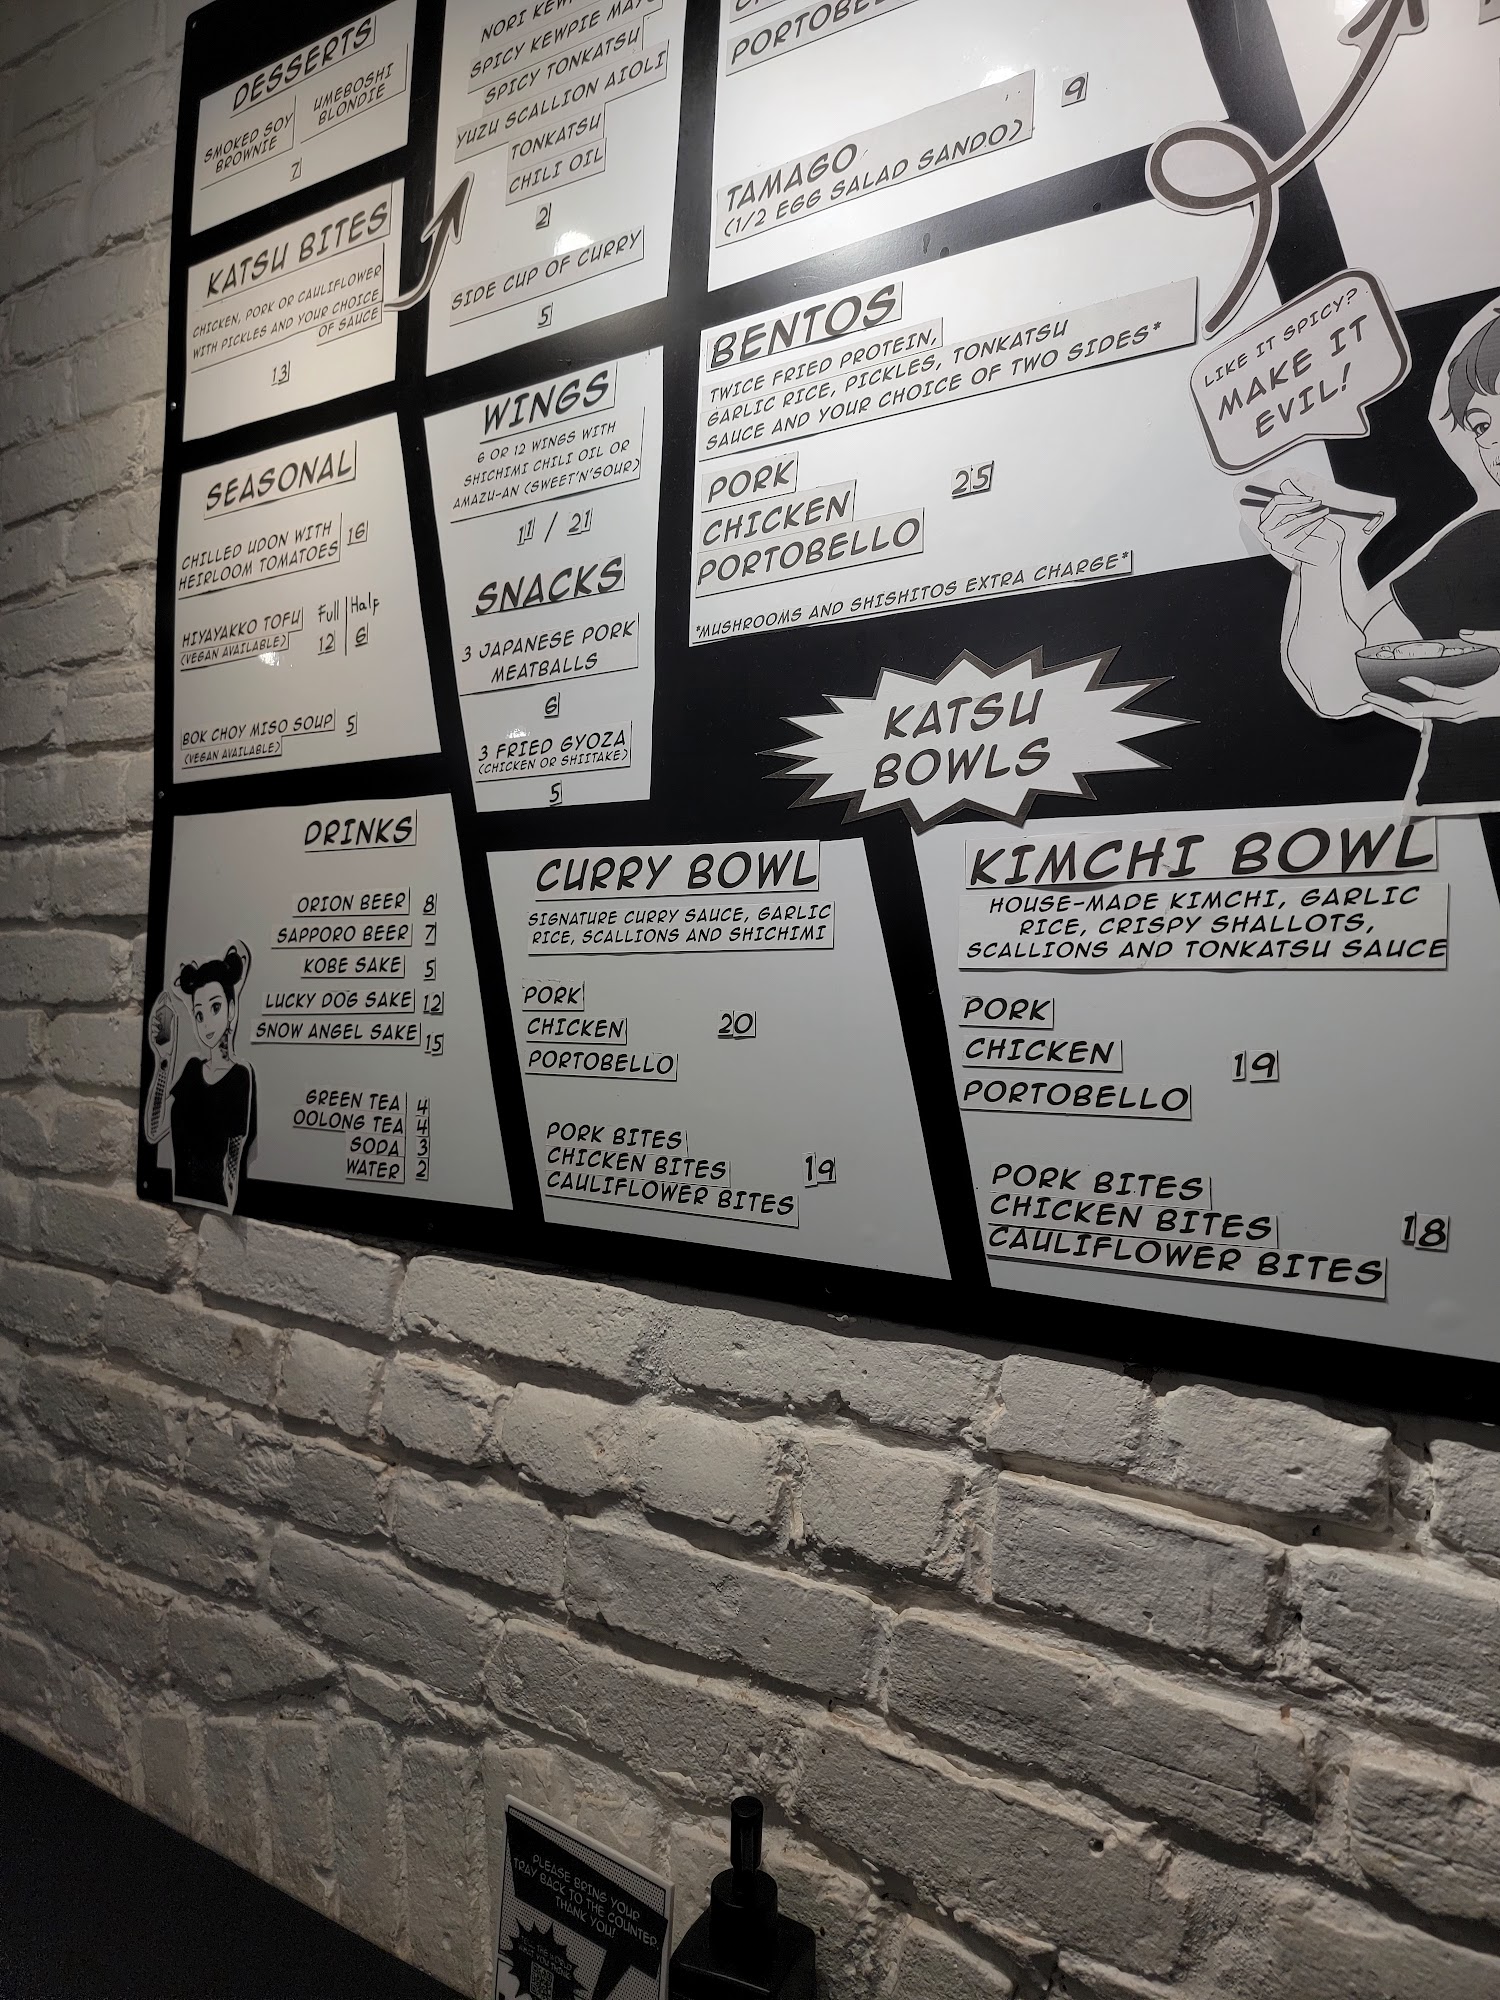 DESSERTS
SMOKED SOY
BROWNIE
UMEBOSHI
BLONDIE
7
KATSU BITES
CHICKEN, PORK OR CAULIFLOWER
WITH PICKLES AND YOUR CHOICE
OF SAUCE
13
SEASONAL
CHILLED UDON WITH
HEIRLOOM TOMATOES 16
Full | Half
HIYAYAKKO TOFU 12 | 6
(VEGAN AVAILABLE)
BOK CHOY MISO SOUP 5
(VEGAN AVAILABLE)
DRINKS
ORION BEER 8
SAPPORO BEER 7
KOBE SAKE 5
LUCKY DOG SAKE 12
SNOW ANGEL SAKE 15
GREEN TEA 4
OOLONG TEA 4
SODA 3
WATER 2
NORI
SPICY KEWPIE
SPICY TONKATSU
YUZU SCALLION AIOLI
TONKATSU
CHILI OIL
2
SIDE CUP OF CURRY
5
WINGS
6 OR 12 WINGS WITH
SHICHIMI CHILI OIL OR
AMAZU-AN (SWEET'N'SOUR)
11 / 21
SNACKS
3 JAPANESE PORK
MEATBALLS
6
3 FRIED GYOZA
(CHICKEN OR SHIITAKE)
5
TAMAGO 9
(1/2 EGG SALAD SANDO)
BENTOS
TWICE FRIED PROTEIN,
GARLIC RICE, PICKLES, TONKATSU
SAUCE AND YOUR CHOICE OF TWO SIDES*
PORK
CHICKEN 25
PORTOBELLO
*MUSHROOMS AND SHISHITOS EXTRA CHARGE*
LIKE IT SPICY?
MAKE IT
EVIL!
KATSU
BOWLS
CURRY BOWL
SIGNATURE CURRY SAUCE, GARLIC
RICE, SCALLIONS AND SHICHIMI
PORK
CHICKEN 20
PORTOBELLO
PORK BITES
CHICKEN BITES 19
CAULIFLOWER BITES
KIMCHI BOWL
HOUSE-MADE KIMCHI, GARLIC
RICE, CRISPY SHALLOTS,
SCALLIONS AND TONKATSU SAUCE
PORK
CHICKEN 19
PORTOBELLO
PORK BITES
CHICKEN BITES 18
CAULIFLOWER BITES
PLEASE BRING YOUR
TRAY BACK TO THE COUNTER.
THANK YOU!